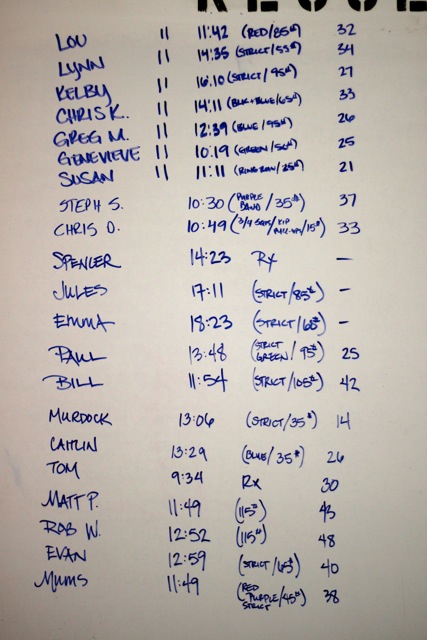 LOU 11 11:42 (RED/85#) 32
LYNN 11 14:35 (STRICT/55#) 34
KELBY 11 16:10 (STRICT/95#) 27
CHRIS K. 11 14:11 (BLK+BLUE/65#) 33
GREG M. 11 12:39 (BLUE/95#) 26
GENEVIEVE 11 10:19 (GREEN/50#) 25
SUSAN 11 11:11 (RING ROW/25#) 21
STEPH S. 10:30 (PURPLE BAND/35#) 37
CHRIS D. 10:49 (3/4 /KIP PULL-UPS/15#) 33
SPENCER 14:23 Rx —
JULES 17:11 (STRICT/85#) -
EMMA 18:23 (STRICT/60#) -
PAUL 13:48 (STRICT GREEN/95#) 25
BILL 11:54 (STRICT/105#) 42
MURDOCK 13:06 (STRICT/35#) 14
CAITLIN 13:29 (BLUE/35#) 26
TOM 9:34 Rx 30
MATT P. 11:49 (115#) 43
ROB W. 12:52 (115#) 48
EVAN 12:59 (STRICT/65#) 40
MUMS 11:49 (RED PURPLE/45#) STRICT 38